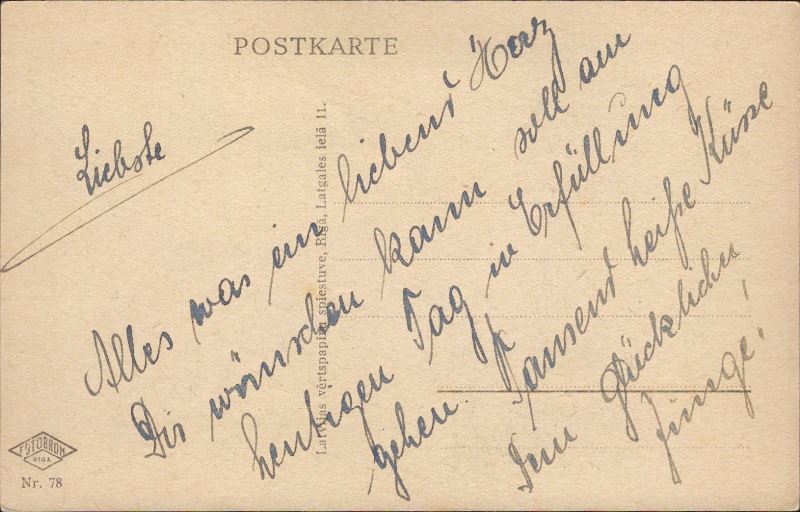 POSTKARTE
Liebste
Alles was ein liebend Herz
Dir wünschen kann soll am
heutigen Tag in Erfüllung
gehen. Tausend heiße Küsse
Dein glücklicher
Junge!
Latvijas vērtspapīru spiestuve, Rīgā, Latgales ielā 11.
FOTOBROM
RIGA
Nr. 78